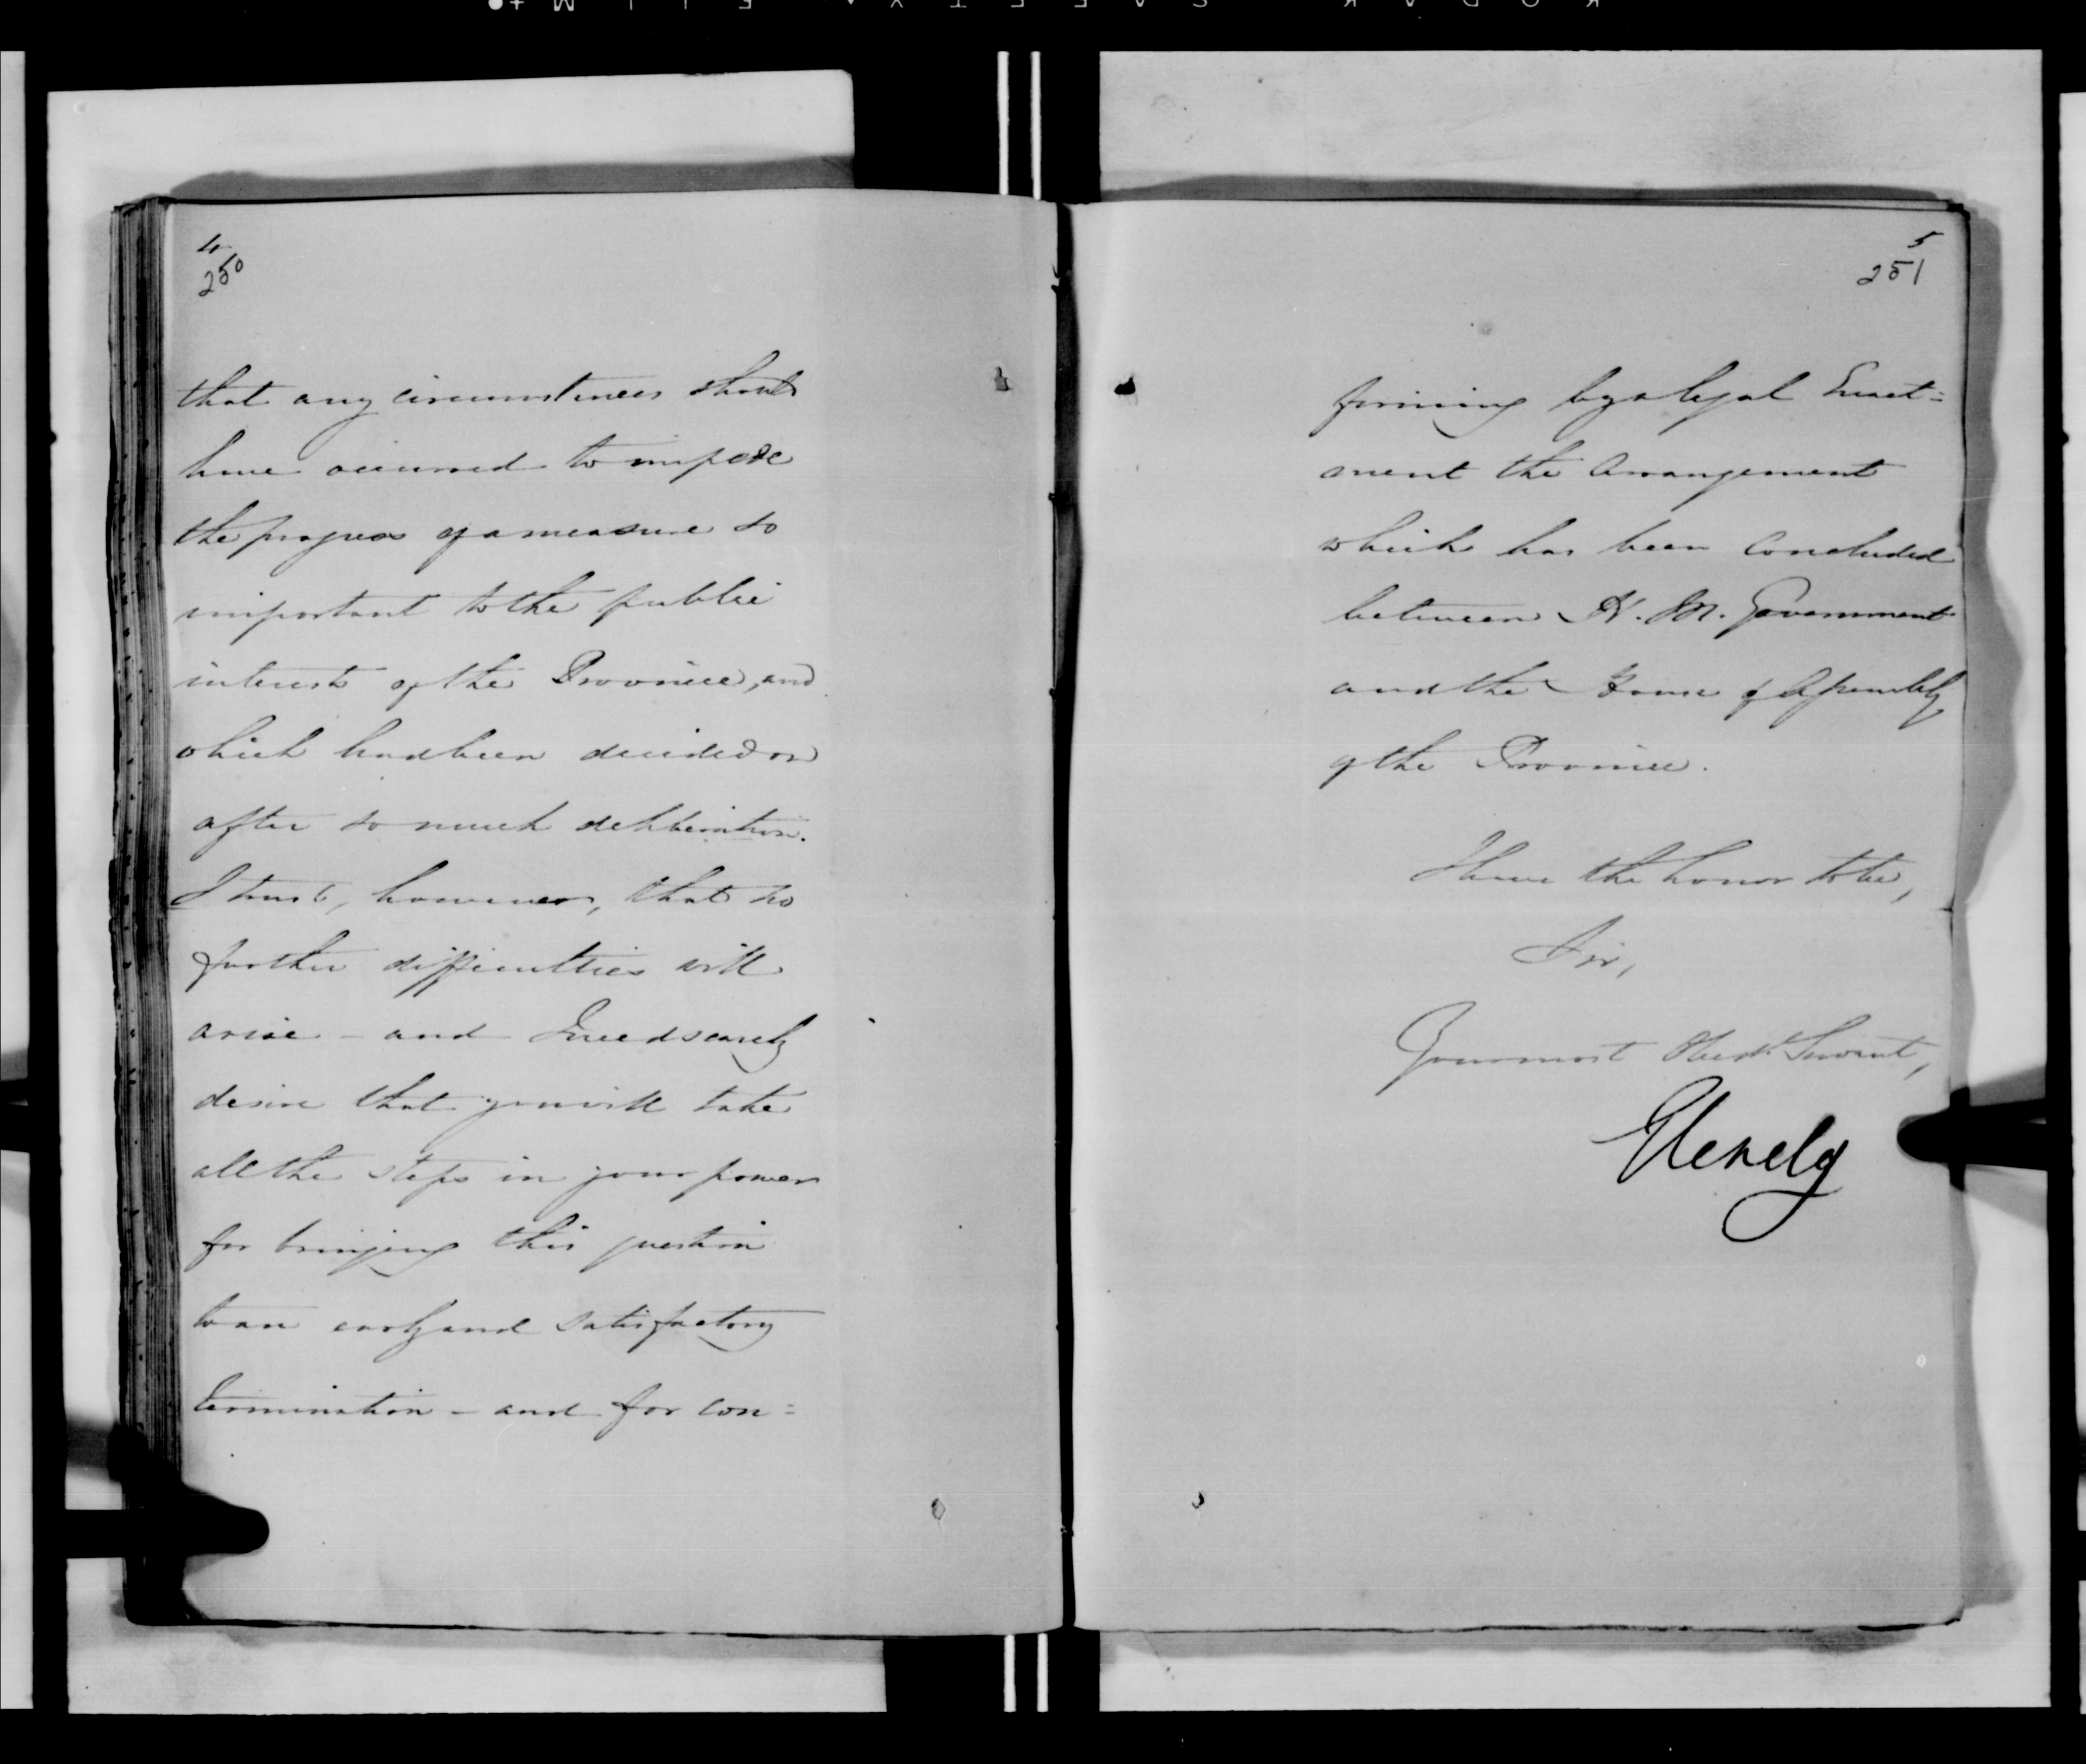 4
250
that any circumstances should
have occurred to impede
the progress of a measure so
important to the public
interests of the Province, and
which had been decided on
after so much deliberation.
I trust, however, that no
further difficulties will
arise - and I need scarcely
desire that you will take
all the steps in your power
for bringing this question
to an early and satisfactory
termination - and for con=
5
251
firming by a legal Enact=
ment the Arrangement
which has been concluded
between H. M. Government
and the House of Assembly
of the Province.
I have the honor to be,
Sir,
Your most Obedt. Servant,
Glenelg